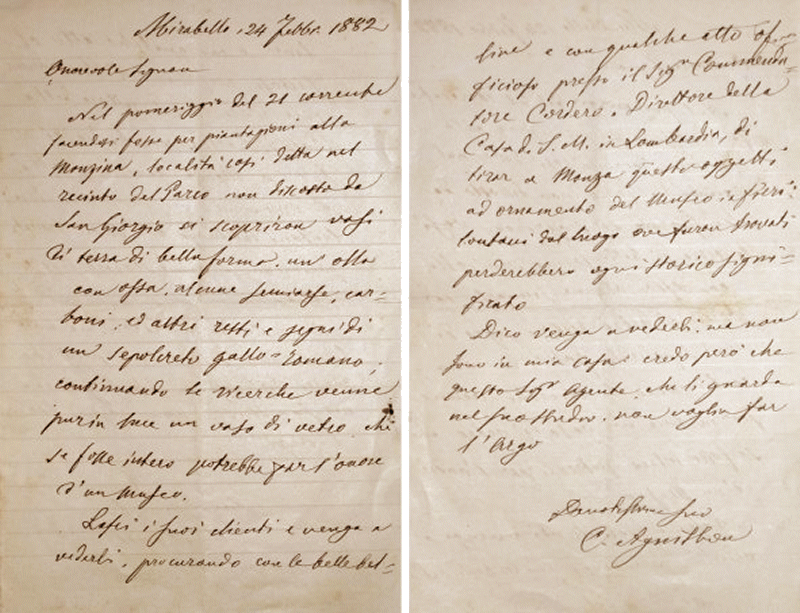 Mirabello, 24 Febbr. 1882
Onorevole Signore
Nel pomeriggio del 21 corrente
facendosi fosse per piantagioni alla
Monzina, località così detta nel
recinto del Parco non discosto da
San Giorgio si scopriron vasi
di terra di bella forma, un olla
con ossa, alcune semiarse, car=
boni, ed altri resti e segni di
un sepolcreto gallo=romano;
continuando le ricerche venne
pur in luce un vaso di vetro, chè
se fosse intero potrebbe far l'onore
d'un Museo.
Lasci i suoi clienti e venga a
vederli, procurando con le belle bel=
line e con qualche atto of=
ficioso presso il Sigr Commenda
tore Cordero, Direttore della
Casa d. S. M. in Lombardia, di
tirar a Monza questi oggetti
ad ornamento del Museo in fieri:
lontani dal luogo ove furon trovati
perderebbero ogni storico signi=
ficato
Dico venga a vederli: ma non
sono in mia casa: credo però che
questo Sigr Agente, che li guarda
nel suo studio, non voglia far
l'Argo
suo
C.